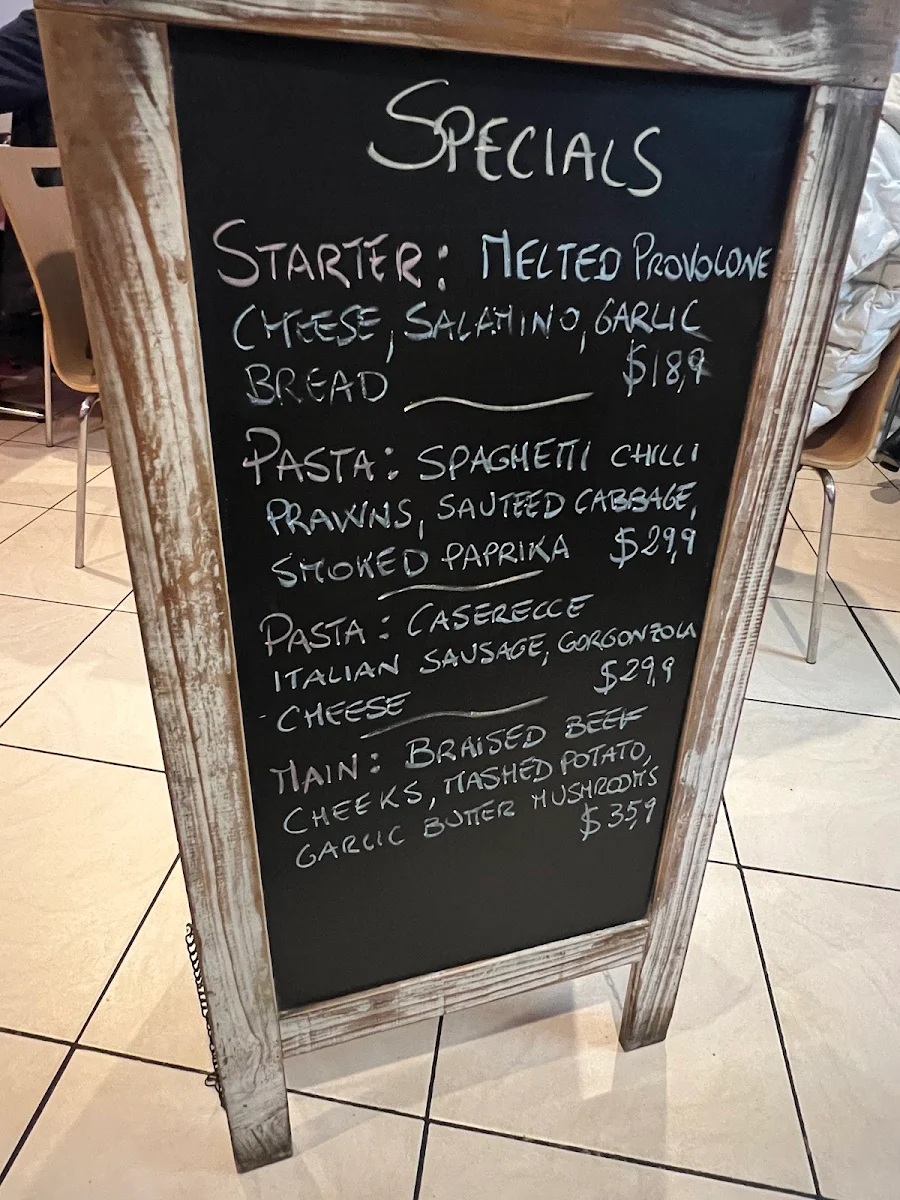 SPECIALS
STARTER: MELTED PROVOLONE
CHEESE, SALAMINO, GARLIC
BREAD $18,9
PASTA: SPAGHETTI CHILLI
PRAWNS, SAUTEED CABBAGE,
SMOKED PAPRIKA $29,9
PASTA: CASERECCE
ITALIAN SAUSAGE, GORGONZOLA
CHEESE $29,9
MAIN: BRAISED BEEF
CHEEKS, MASHED POTATO,
GARLIC BUTTER MUSHROOMS
$35,9